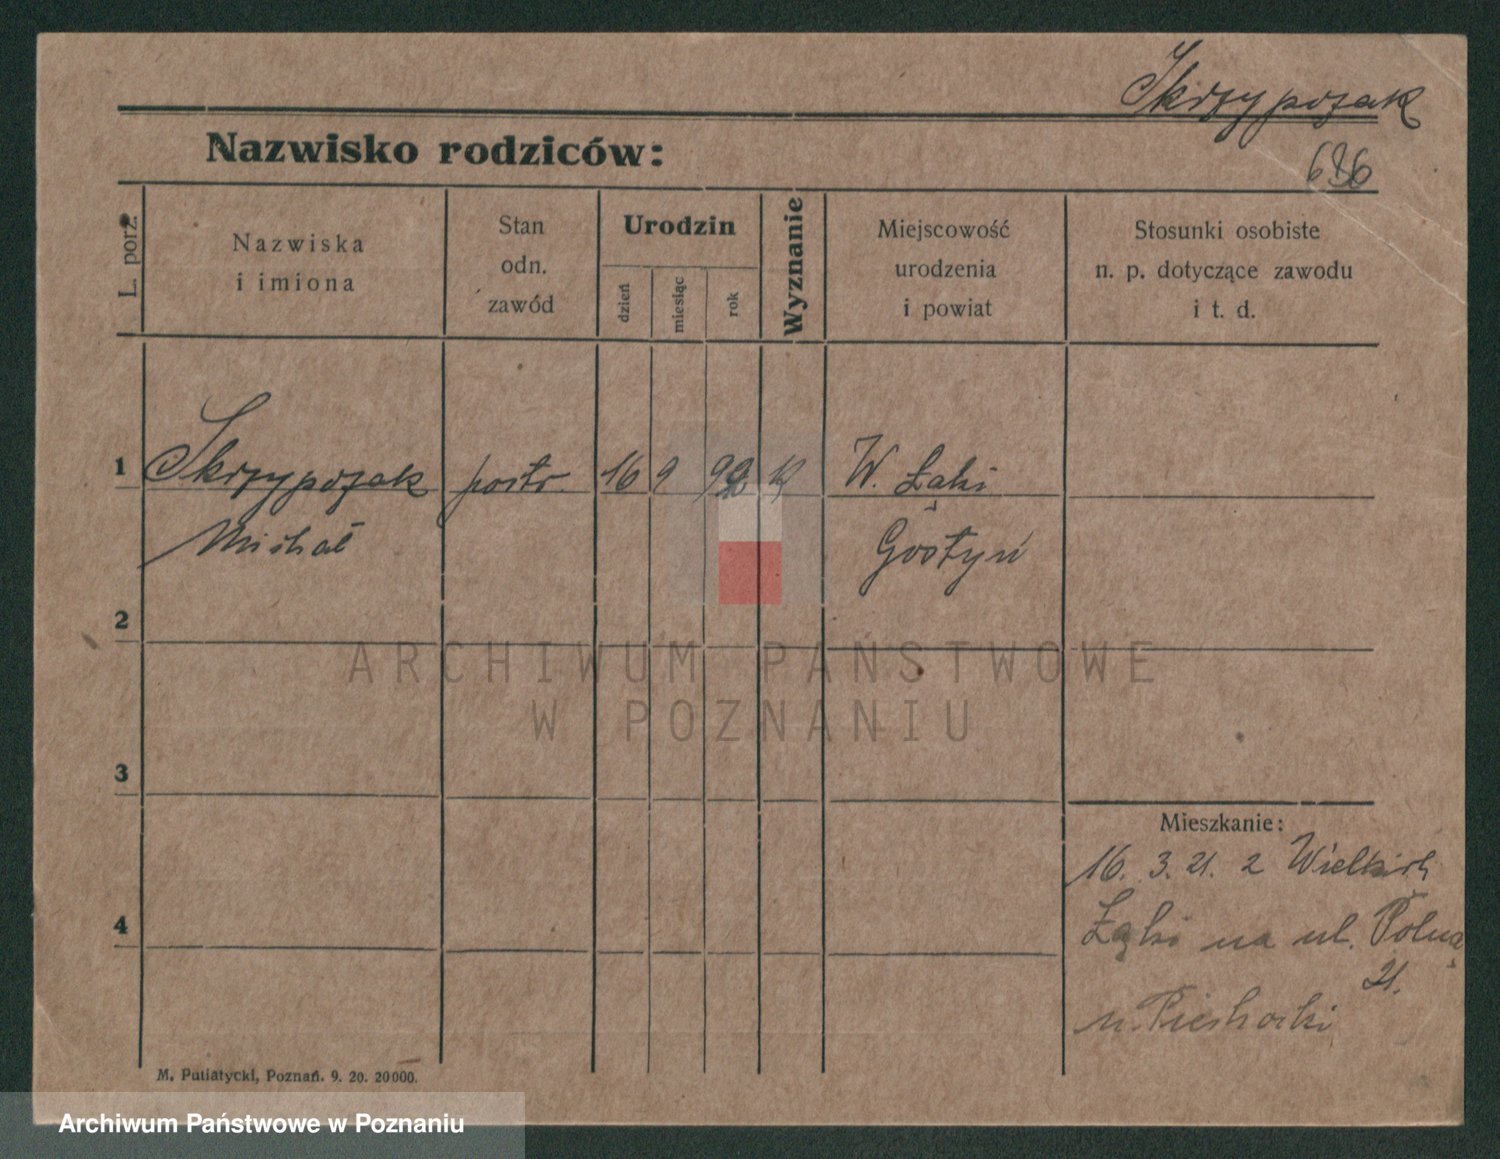 Skrzypczak
686
Nazwisko rodziców:
L. porz.
Nazwiska
i imiona
Stan
odn.
zawód
Urodzin
dzień
miesiąc
rok
Wyznanie
Miejscowość
urodzenia
i powiat
Stosunki osobiste
n. p. dotyczące zawodu
i t. d.
1
Skrzypczak
Michał
16
9
92
k
W. Łąki
Gostyń
2
ARCHIWUM PAŃSTWOWE
W POZNANIU
3
Mieszkanie:
16. 3. 21. z Wielkich
4
Łąki na ul. Polną
21.
u. Piechocki
M. Putiatycki, Poznań. 9. 20. 20000.
Archiwum Państwowe w Poznaniu